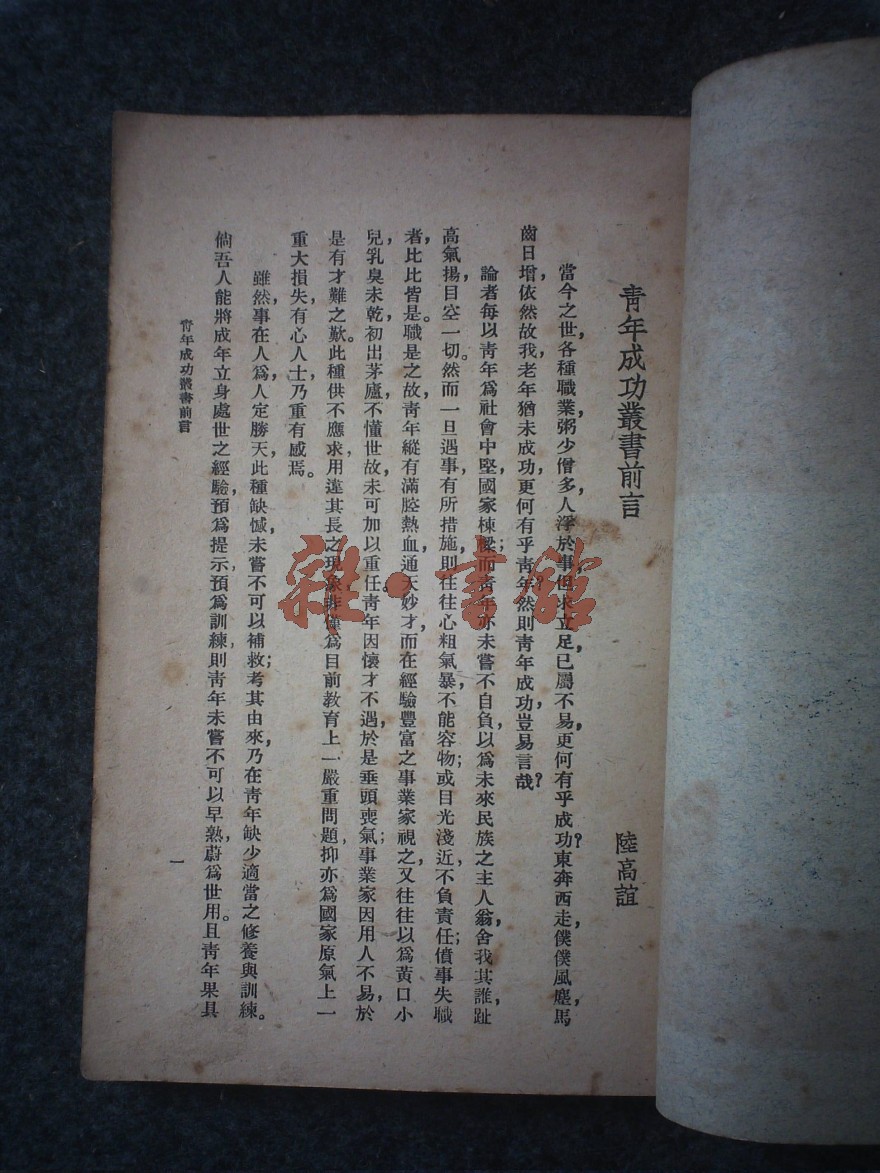 青年成功叢書前言
陸高誼
當今之世，各種職業，粥少僧多，人浮於事，但求立足，已屬不易，更何有乎成功？東奔西走，僕僕風塵，馬
齒日增，依然故我，老年猶未成功，更何有乎青年？然則青年成功，豈易言哉？
論者每以青年爲社會中堅，國家棟樑；而青年亦未嘗不自負以爲未來民族之主人翁，舍我其誰，趾
高氣揚，目空一切。然而一旦遇事，有所措施，則往往心粗氣暴，不能容物；或目光淺近，不負責任；僨事失職
者，比比皆是。職是之故，青年縱有滿腔熱血，通天妙才，而在經驗豐富之事業家視之，又往往以爲黃口小
兒，乳臭未乾，初出茅廬，不懂世故，未可加以重任。青年因懷才不遇，於是垂頭喪氣；事業家因用人不易，於
是有才難之歎。此種供不應求，用違其長之現象，非僅爲目前教育上一嚴重問題，抑亦爲國家原氣上一
重大損失，有心人士，乃重有感焉。
雖然，事在人爲，人定勝天，此種缺憾，未嘗不可以補救；考其由來，乃在青年缺少適當之修養與訓練。
倘吾人能將成年立身處世之經驗，預爲提示，預爲訓練，則青年未嘗不可以早熟，蔚爲世用。且青年果具
青年成功叢書前言
一
雜·書館